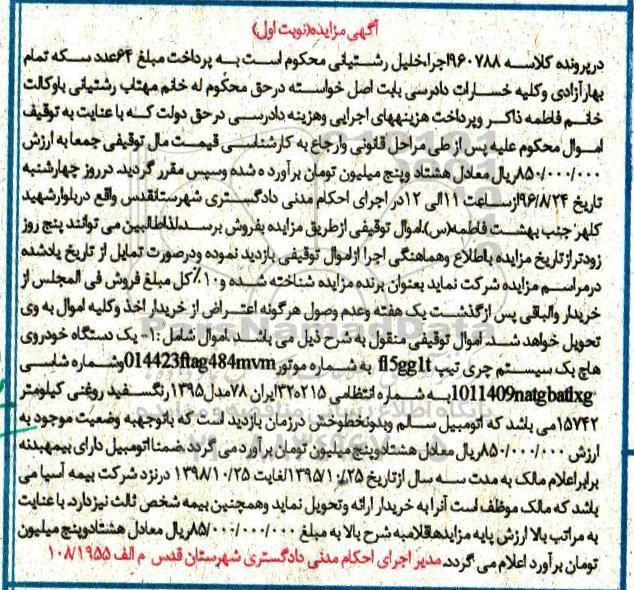 آگهی مزایده(نوبت اول)
درپرونده کلاسه ۹۶۰۷۸۸اجراخلیل رشتیانی محکوم است به پرداخت مبلغ ۶۴عدد سکه تمام
بهارآزادی وکلیه خسارات دادرسی بابت اصل خواسته درحق محکوم له خانم مهتاب رشتیانی باوکالت
خانم فاطمه ذاکر وپرداخت هزینههای اجرایی وهزینه دادرسی درحق دولت که با عنایت به توقیف
اموال محکوم علیه پس از طی مراحل قانونی وارجاع به کارشناسی قیمت مال توقیفی جمعا به ارزش
۸۵۰/۰۰۰/۰۰۰ریال معادل هشتاد وپنج میلیون تومان برآورد ه شده وسپس مقرر گردید. درروز چهارشنبه
تاریخ ۹۶/۸/۲۴ازساعت ۱۱الی ۱۲در اجرای احکام مدنی دادگستری شهرستانقدس واقع دربلوارشهید
کلهر جنب بهشت فاطمه(س)،اموال توقیفی ازطریق مزایده بفروش برسد.لذاطالبین می توانند پنج روز
زودتراز تاریخ مزایده باطلاع وهماهنگی اجرا ازاموال توقیفی بازدید نموده ودرصورت تمایل از تاریخ یادشده
درمراسم مزایده شرکت نماید بعنوان برنده مزایده شناخته شده و۱۰٪کل مبلغ فروش فی المجلس از
خریدار والباقی پس ازگذشت یک هفته وعدم وصول هرگونه اعتراض از خریدار اخذ وکلیه اموال به وی
تحویل خواهد شد. اموال توقیفی منقول به شرح ذیل می باشد. اموال شامل :۱- یک دستگاه خودروی
هاچ بک سیستم چری تیپ fl5gg1t به شماره موتور014423ftag484mvmوشماره شاسی
1011409natgbatlxgبه شماره انتظامی ۲۱۵ط۳۲ایران ۷۸مدل۱۳۹۵رنگسفید روغنی کیلومتر
۱۵۷۴۲می باشد که اتومبیل سالم وبدونخطوخش درزمان بازدید است که باتوجهبه وضعیت موجود به
ارزش ۸۵۰/۰۰۰/۰۰۰ریال معادل هشتادوپنج میلیون تومان برآورد می گردد.ضمنااتومبیل دارای بیمهبدنه
برابراعلام مالک به مدت سه سال ازتاریخ ۱۳۹۵/۱۰/۲۵لغایت ۱۳۹۸/۱۰/۲۵ درنزد شرکت بیمه آسیا می
باشد که مالک موظف است آنرا به خریدار ارائه وتحویل نماید وهمچنین بیمه شخص ثالث نیزدارد. با عنایت
به مراتب بالا ارزش پایه مزایدهاقلامبه شرح بالا به مبلغ ۸۵/۰۰۰/۰۰۰/۰۰۰ریال معادل هشتادوپنج میلیون
تومان برآورد اعلام می گردد.مدیر اجرای احکام مدنی دادگستری شهرستان قدس م الف ۱۰۸/۱۹۵۵